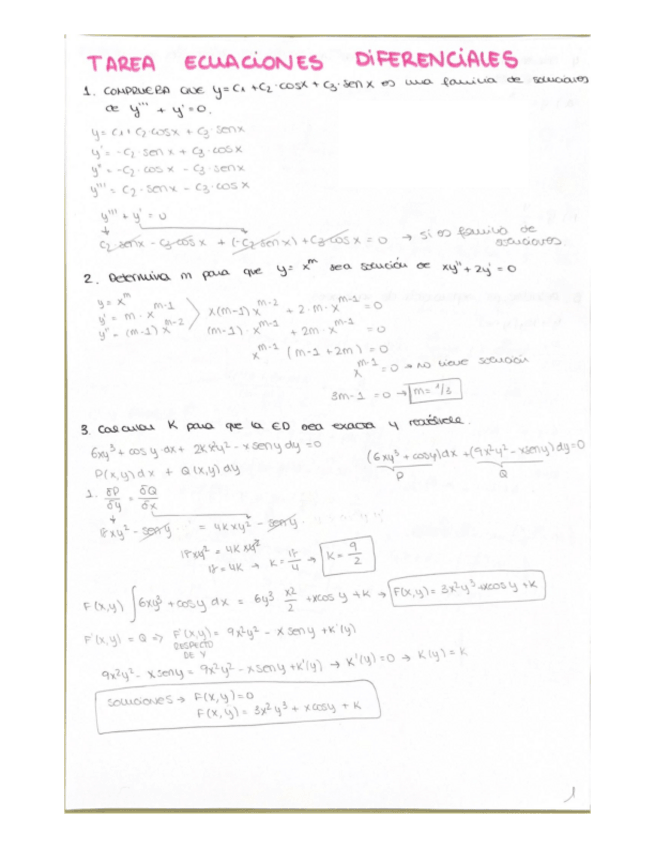 TAREA ECUACIONES DIFERENCIALES
1. COMPRUEBA QUE y = C1 + C2·cosx + C3·senx es una familia de soluciones
de y''' + y' = 0.
y = C1 + C2·cosx + C3·senx
y' = -C2·senx + C3·cosx
y'' = -C2·cosx - C3·senx
y''' = C2·senx - C3·cosx
y''' + y' = 0
C2·senx - C3·cosx + (-C2 senx) + C3·cosx = 0 → Sí es familia de
soluciones
2. Determina m para que y = x^m sea solución de xy'' + 2y' = 0
y = x^m
y' = m·x^m-1
y'' = (m-1) x^m-2
x(m-1) x^m-2 + 2·m·x^m-1 = 0
(m-1)·x^m-1 + 2m·x^m-1 = 0
x^m-1 (m-1+2m) = 0
x^m-1 = 0 → no tiene solución
3m-1 = 0 → m = 1/3
3. Calcular K para que la ED sea exacta y resuélvela.
6xy³ + cosy dx + 2Kx²y² - xseny dy = 0
P(x,y)dx + Q(x,y)dy
(6xy³ + cosy)dx + (9x²y² - xseny)dy = 0
P Q
1. δP/δy = δQ/δx
18xy² - seny = 4Kxy² - seny
18xy² = 4Kxy²
18 = 4K → K = 18/4 → K = 9/2
F(x,y) ∫6xy³ + cosy dx = 6y³ x²/2 + xcosy + K → F(x,y) = 3x²y³ + xcosy + K
F'(x,y) = Q => F'(x,y) = 9x²y² - xseny + K'(y)
RESPECTO
DE Y
9x²y² - xseny = 9x²y² - xseny + K'(y) → K'(y) = 0 → K(y) = K
SOLUCIONES → F(x,y) = 0
F(x,y) = 3x²y³ + xcosy + K
1